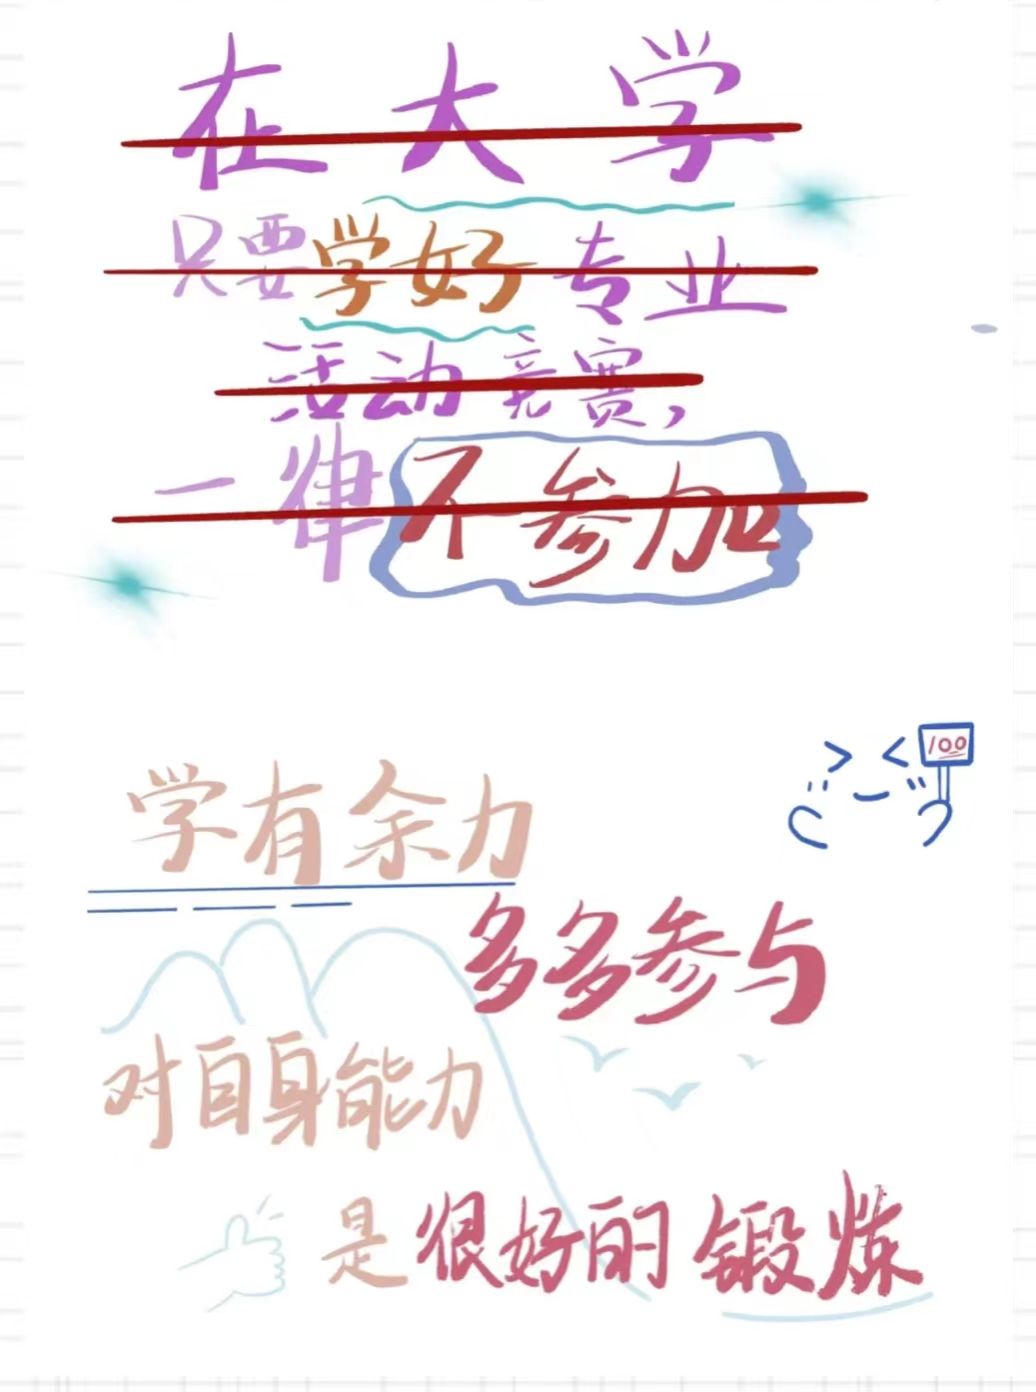 在大学
只要学好专业
活动竞赛，
一律不参加
100
学有余力
多多参与
对自身能力
是很好的锻炼